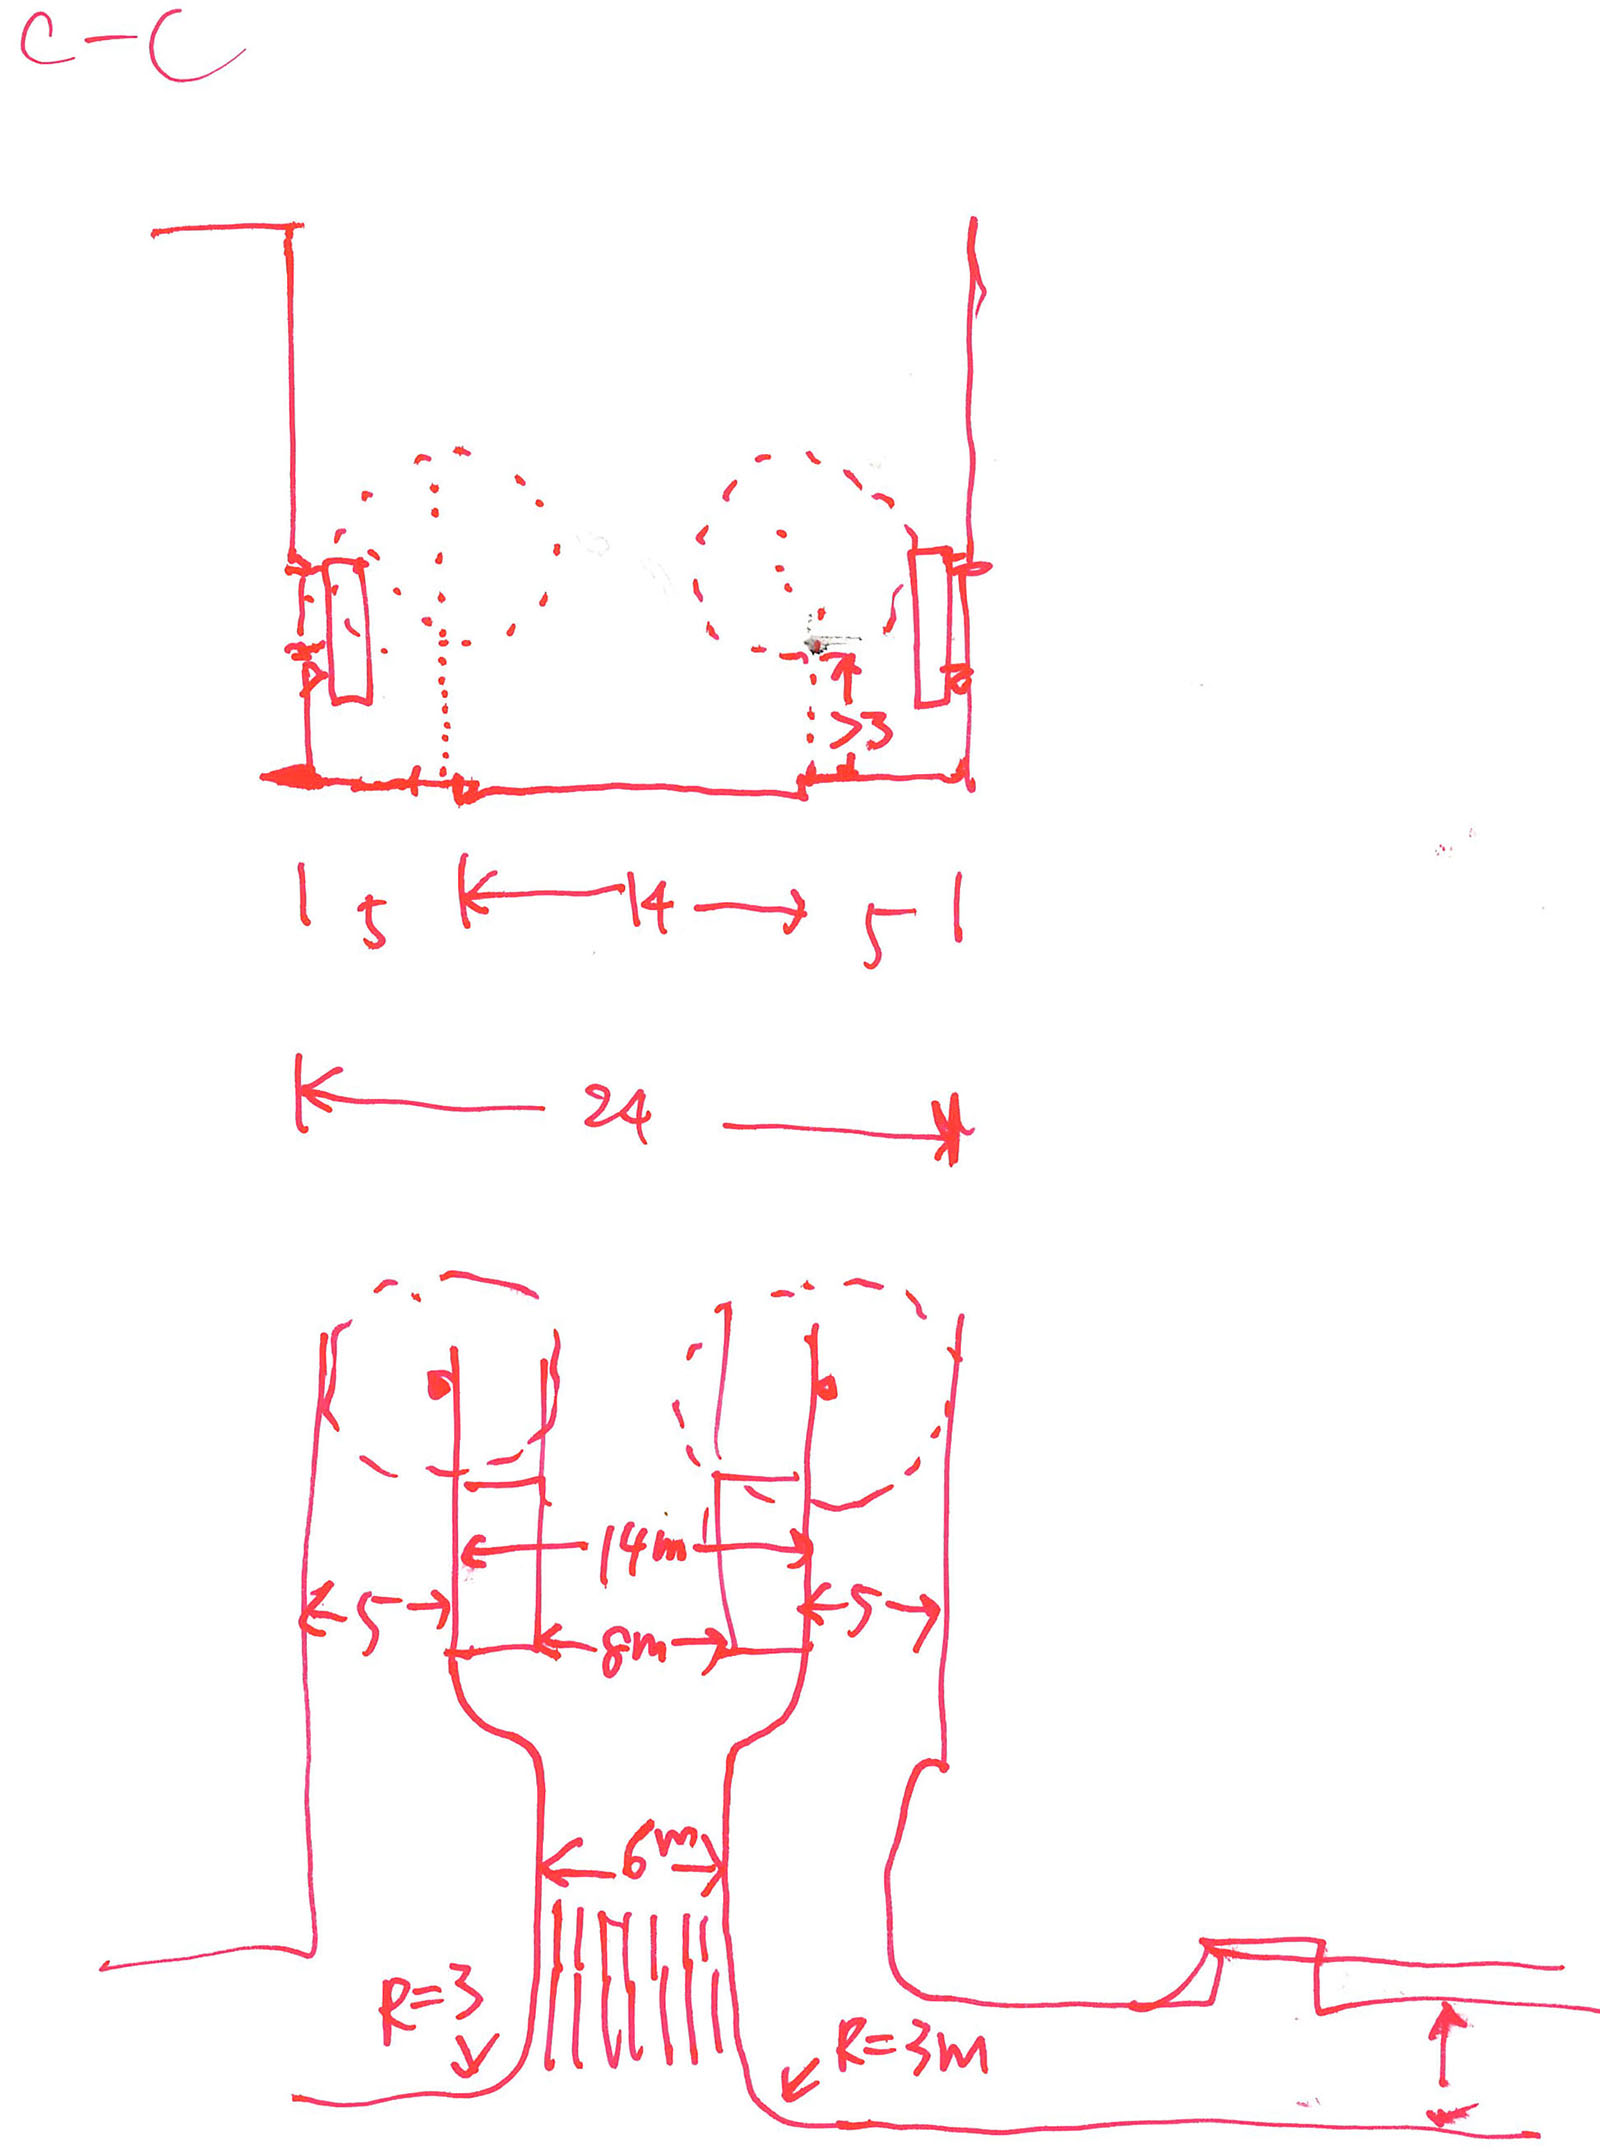 C-C
>3
5 14 5
24
14m
5 8m 5
6m
R=3
R=3M